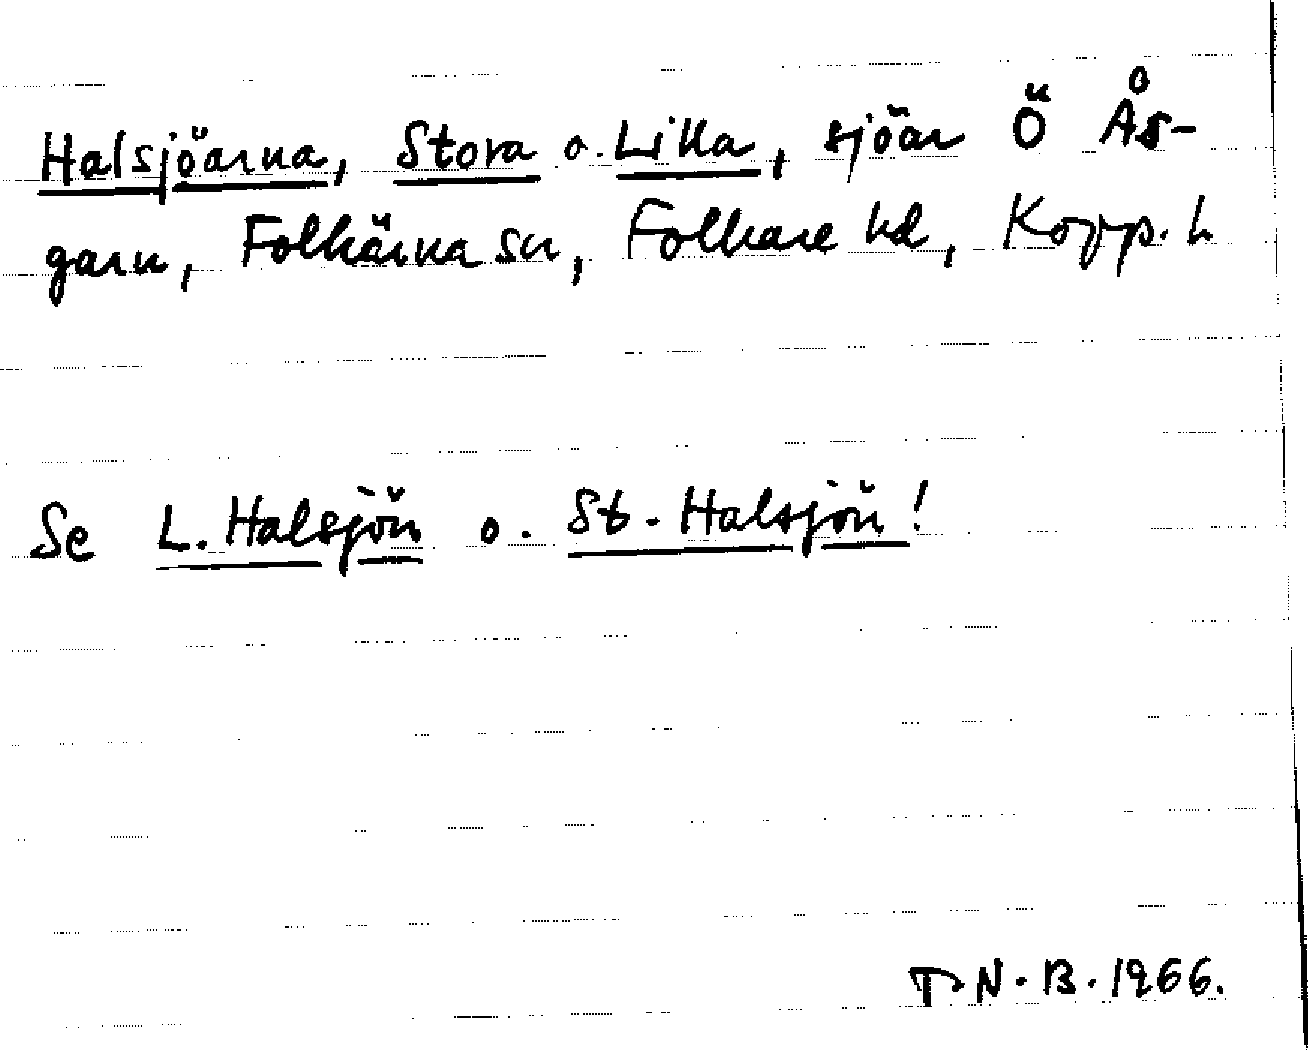 Halsjöarna, Stora o. Lilla, sjöar Ö Ås-
garn, Folkärna sn, Folkare hd, Kopp. l.
Se L. Halsjön o. St. Halsjön!
T. N. B. 1966.